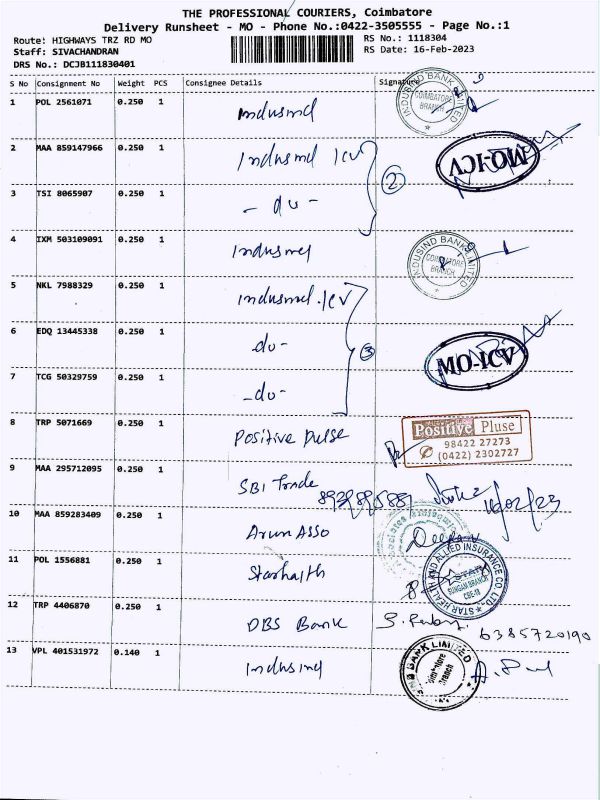 THE PROFESSIONAL COURIERS, Coimbatore
Delivery Runsheet - MO - Phone No.:0422-3505555 - Page No.:1
Route: HIGHWAYS TRZ RD MO
RS No.: 1118304
Staff: SIVACHANDRAN
RS Date: 16-Feb-2023
DRS No.: DCJB111830401
S No Consignment No Weight PCS Consignee Details Signature
1 POL 2561071 0.250 1 Indusind
INDUSIND BANK LIMITED
COIMBATORE
BRANCH
2 MAA 859147966 0.250 1 Indusind ICV
2
MO-ICV
3 TSI 8065907 0.250 1 - do -
4 IXM 503109091 0.250 1 Indusind
INDUSIND BANK LIMITED
COIMBATORE
BRANCH
5 NKL 7988329 0.250 1 Indusind. ICV
6 EDQ 13445338 0.250 1 -do-
3
MO-ICV
7 TCG 50329759 0.250 1 -do-
8 TRP 5071669 0.250 1 Positive Pulse
Positive Pluse
98422 27273
(0422) 2302727
9 MAA 295712095 0.250 1 SBI Trade
16/02/23
10 MAA 859283409 0.250 1 Arun Asso
11 POL 1556881 0.250 1
STAR HEALTH AND ALLIED INSURANCE CO LTD.
SUNGAM BRANCH
CBE-18
12 TRP 4406870 0.250 1 DBS Bank
6385720190
13 VPL 401531972 0.140 1 Indusind
BANK LIMITED
Coimbatore
Branch